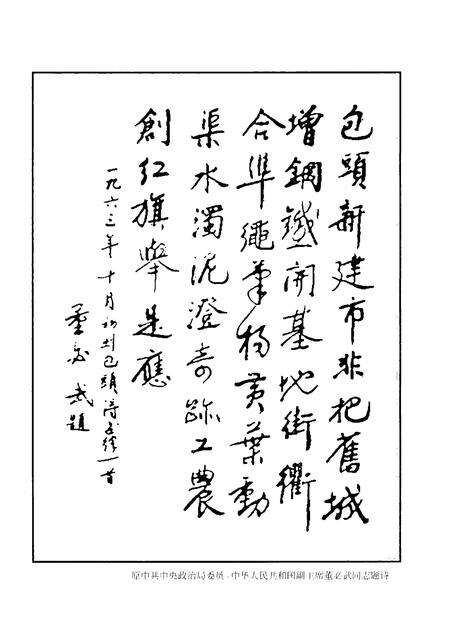 包頭新建市非把舊城
增鋼鐵開基地街衢
合準繩楊黃葉動
渠水濁泥澄奇跡工農
創红旗舉是應
一九六三年十月初到包頭詩五律一首
董必武題
原中共中央政治局委员、中华人民共和国副主席董必武同志题诗